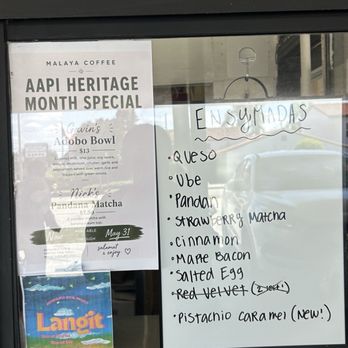 MALAYA COFFEE
AAPI HERITAGE
MONTH SPECIAL
Gavin's
Adobo Bowl
$13
Nick's
Pandana Matcha
May 31
salamat
& enjoy
Langit
ENSYMADAS
• QUESO
• Ube
• Pandan
• Strawberry Matcha
• Cinnamon
• Maple Bacon
• Salted Egg
• Red Velvet (2 left!)
• Pistachio Caramel (New!)